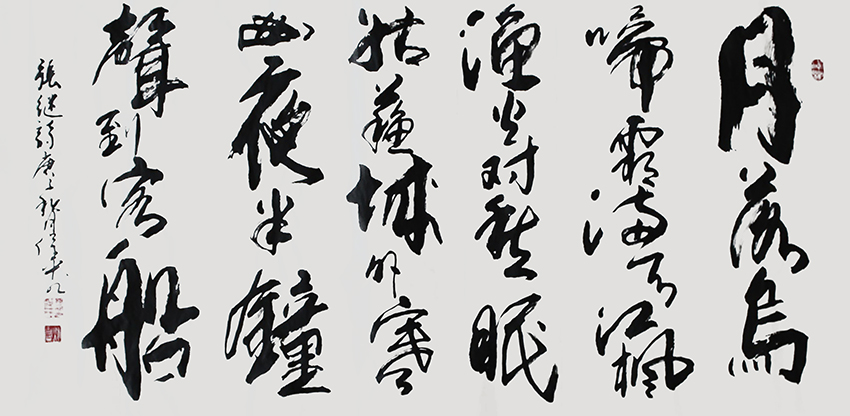 月落烏
啼霜满天江楓
漁火对愁眠
姑蘇城外寒
山夜半鐘
聲到客船
張继詩庚子